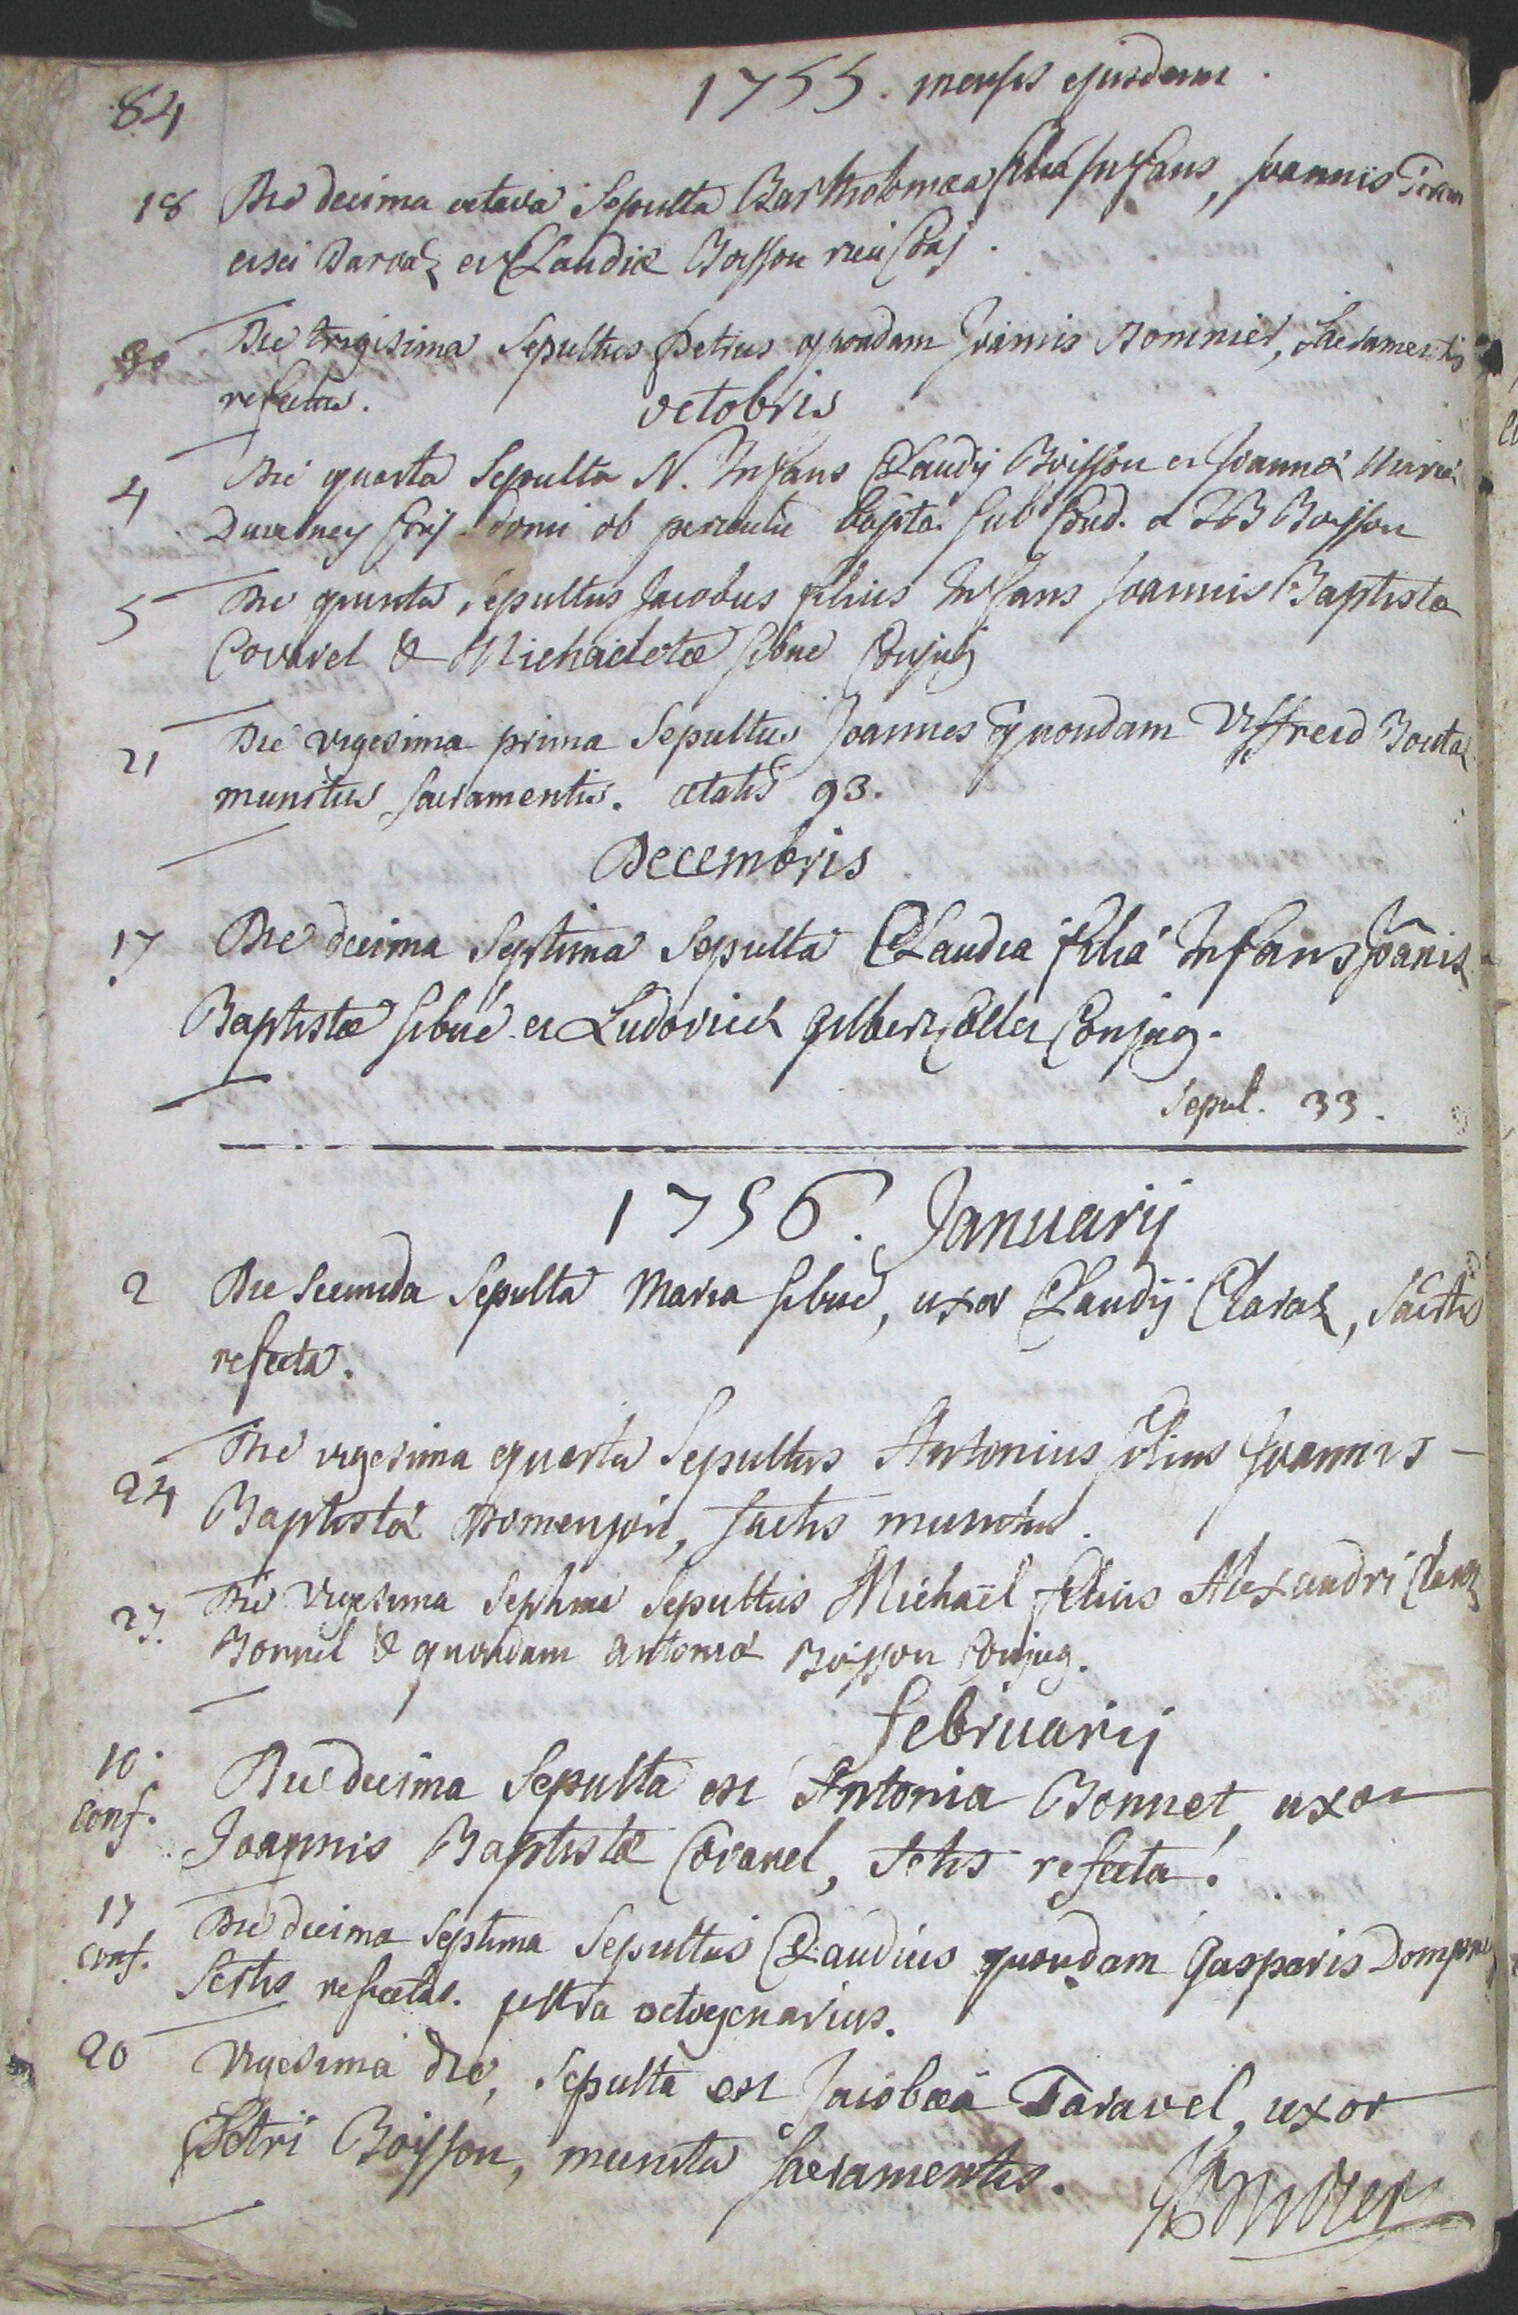 84
1755. mensis ejusdem.
18 Die decima octava Sepulta Bartholomea filia Infans, Joannis
Darvaz et Claudiæ Boisson Conj.
30 Die trigesima Sepultus Petrus quondam Joannis Domnier, Sacramentis
refectus.
octobris
4 Die quarta Sepulta N. Infans Claudij Boisson et Joannæ Mariæ
Duverney Conj. domi ob periculū bapta. sub Cond. a JB Boisson
5 Die quinta Sepultus Jacobus filius Infans Joannis Baptistæ
Covarel & Michaeletæ Sibue Conjug
21 Die vigesima prima Sepultus Joannes quondam Uffred Boutaz
munitus sacramentis. ætatis 93.
Decembris
17 Die decima Septima Sepulta Claudia filia Infans Joānis
Baptistæ Sibue et Ludovicæ gilbert Collet Conjug.
Sepul. 33.
1756. Januarij
2 Die Secunda Sepulta Maria Sibue, uxor Claudij Claraz, Sactis
refecta.
24 Die vigesima quarta Sepultus Antonius filius Joannis
Baptistæ Domenjon, Sactis munitus.
27. Die Vigesima Septima Sepultus Michaël filius Alexandri Claraz
Bonnel & quondam antoniæ Boisson Conjug.
februarij
10. Die decima Sepulta est Antonia Bonnet, uxor
Conf. Joannis Baptistæ Covarel, Sctis refecta.
17 Die decima Septima Sepultus Claudius quondam Gasparis
Conf. Sctis refectus. ultra octogenarius.
20 Vigesima die, Sepulta est Jacobæa Taravel, uxor
Petri Boisson, munita Sacramentis.